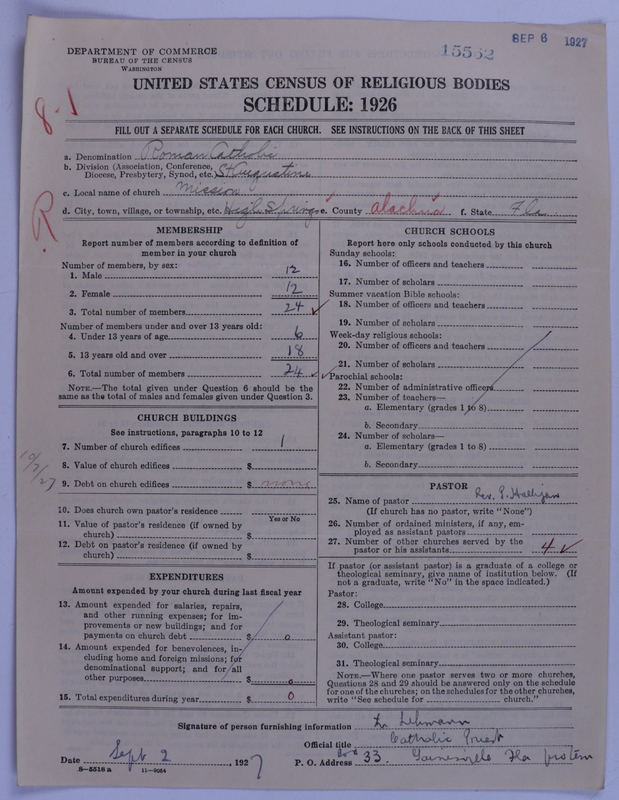 DEPARTMENT OF COMMERCE
BUREAU OF THE CENSUS
WASHINGTON
15562
SEP 6 1927
UNITED STATES CENSUS OF RELIGIOUS BODIES
SCHEDULE: 1926
8-1
FILL OUT A SEPARATE SCHEDULE FOR EACH CHURCH. SEE INSTRUCTIONS ON THE BACK OF THIS SHEET
a. Denomination Roman Catholic
b. Division (Association, Conference, Diocese, Presbytery, Synod, etc. St Augustine
c. Local name of church Mission
R
d. City, town, village, or township, etc. High Springs e. County Alachua f. State Fla
MEMBERSHIP
Report number of members according to definition of
member in your church
Number of members, by sex:
1. Male 12
2. Female 12
3. Total number of members 24
Number of members under and over 13 years old:
4. Under 13 years of age 6
5. 13 years old and over 18
6. Total number of members 24
NOTE.—The total given under Question 6 should be
same as the total of males and females given under Question 3.
CHURCH BUILDINGS
See instructions, paragraphs 10 to 12
7. Number of church edifices 1
8. Value of church edifices $
10/7/27
9. Debt on church edifices $ none
10. Does church own pastor's residence
Yes or No
11. Value of pastor's residence (if owned by
church) $
12. Debt on pastor's residence (if owned by
church) $
EXPENDITURES
Amount expended by your church during last fiscal year
13. Amount expended for salaries, repairs,
and other running expenses; for im-
provements or new buildings; and for
payments on church debt $ 0
14. Amount expended for benevolences, in-
cluding home and foreign missions; for
denominational support; and for all
other purposes $ 0
15. Total expenditures during year $ 0
CHURCH SCHOOLS
Report here only schools conducted by this church
Sunday schools:
16. Number of officers and teachers
17. Number of scholars
Summer vacation Bible schools:
18. Number of officers and teachers
19. Number of scholars
Week-day religious schools:
20. Number of officers and teachers
21. Number of scholars
Parochial schools:
22. Number of administrative officers
23. Number of teachers—
a. Elementary (grades 1 to 8)
b. Secondary
24. Number of scholars—
a. Elementary (grades 1 to 8)
b. Secondary
PASTOR
25. Name of pastor Rev. P. Halligan
(If church has no pastor, write "None")
26. Number of ordained ministers, if any, em-
ployed as assistant pastors
27. Number of other churches served by the
pastor or his assistants 4
If pastor (or assistant pastor) is a graduate of a college or
theological seminary, give name of institution below. (If
not a graduate, write "No" in the space indicated.)
Pastor:
28. College
29. Theological seminary
Assistant pastor:
30. College
31. Theological seminary
NOTE.—Where one pastor serves two or more churches,
Questions 28 and 29 should be answered only on the schedule
for one of the churches; on the schedules for the other churches,
write "See schedule for church."
Signature of person furnishing information Lehmann
Official title Catholic Priest
Date Sept 2, 1927
P. O. Address Box 33. Gainesville Fla
8—5518a 11—9054